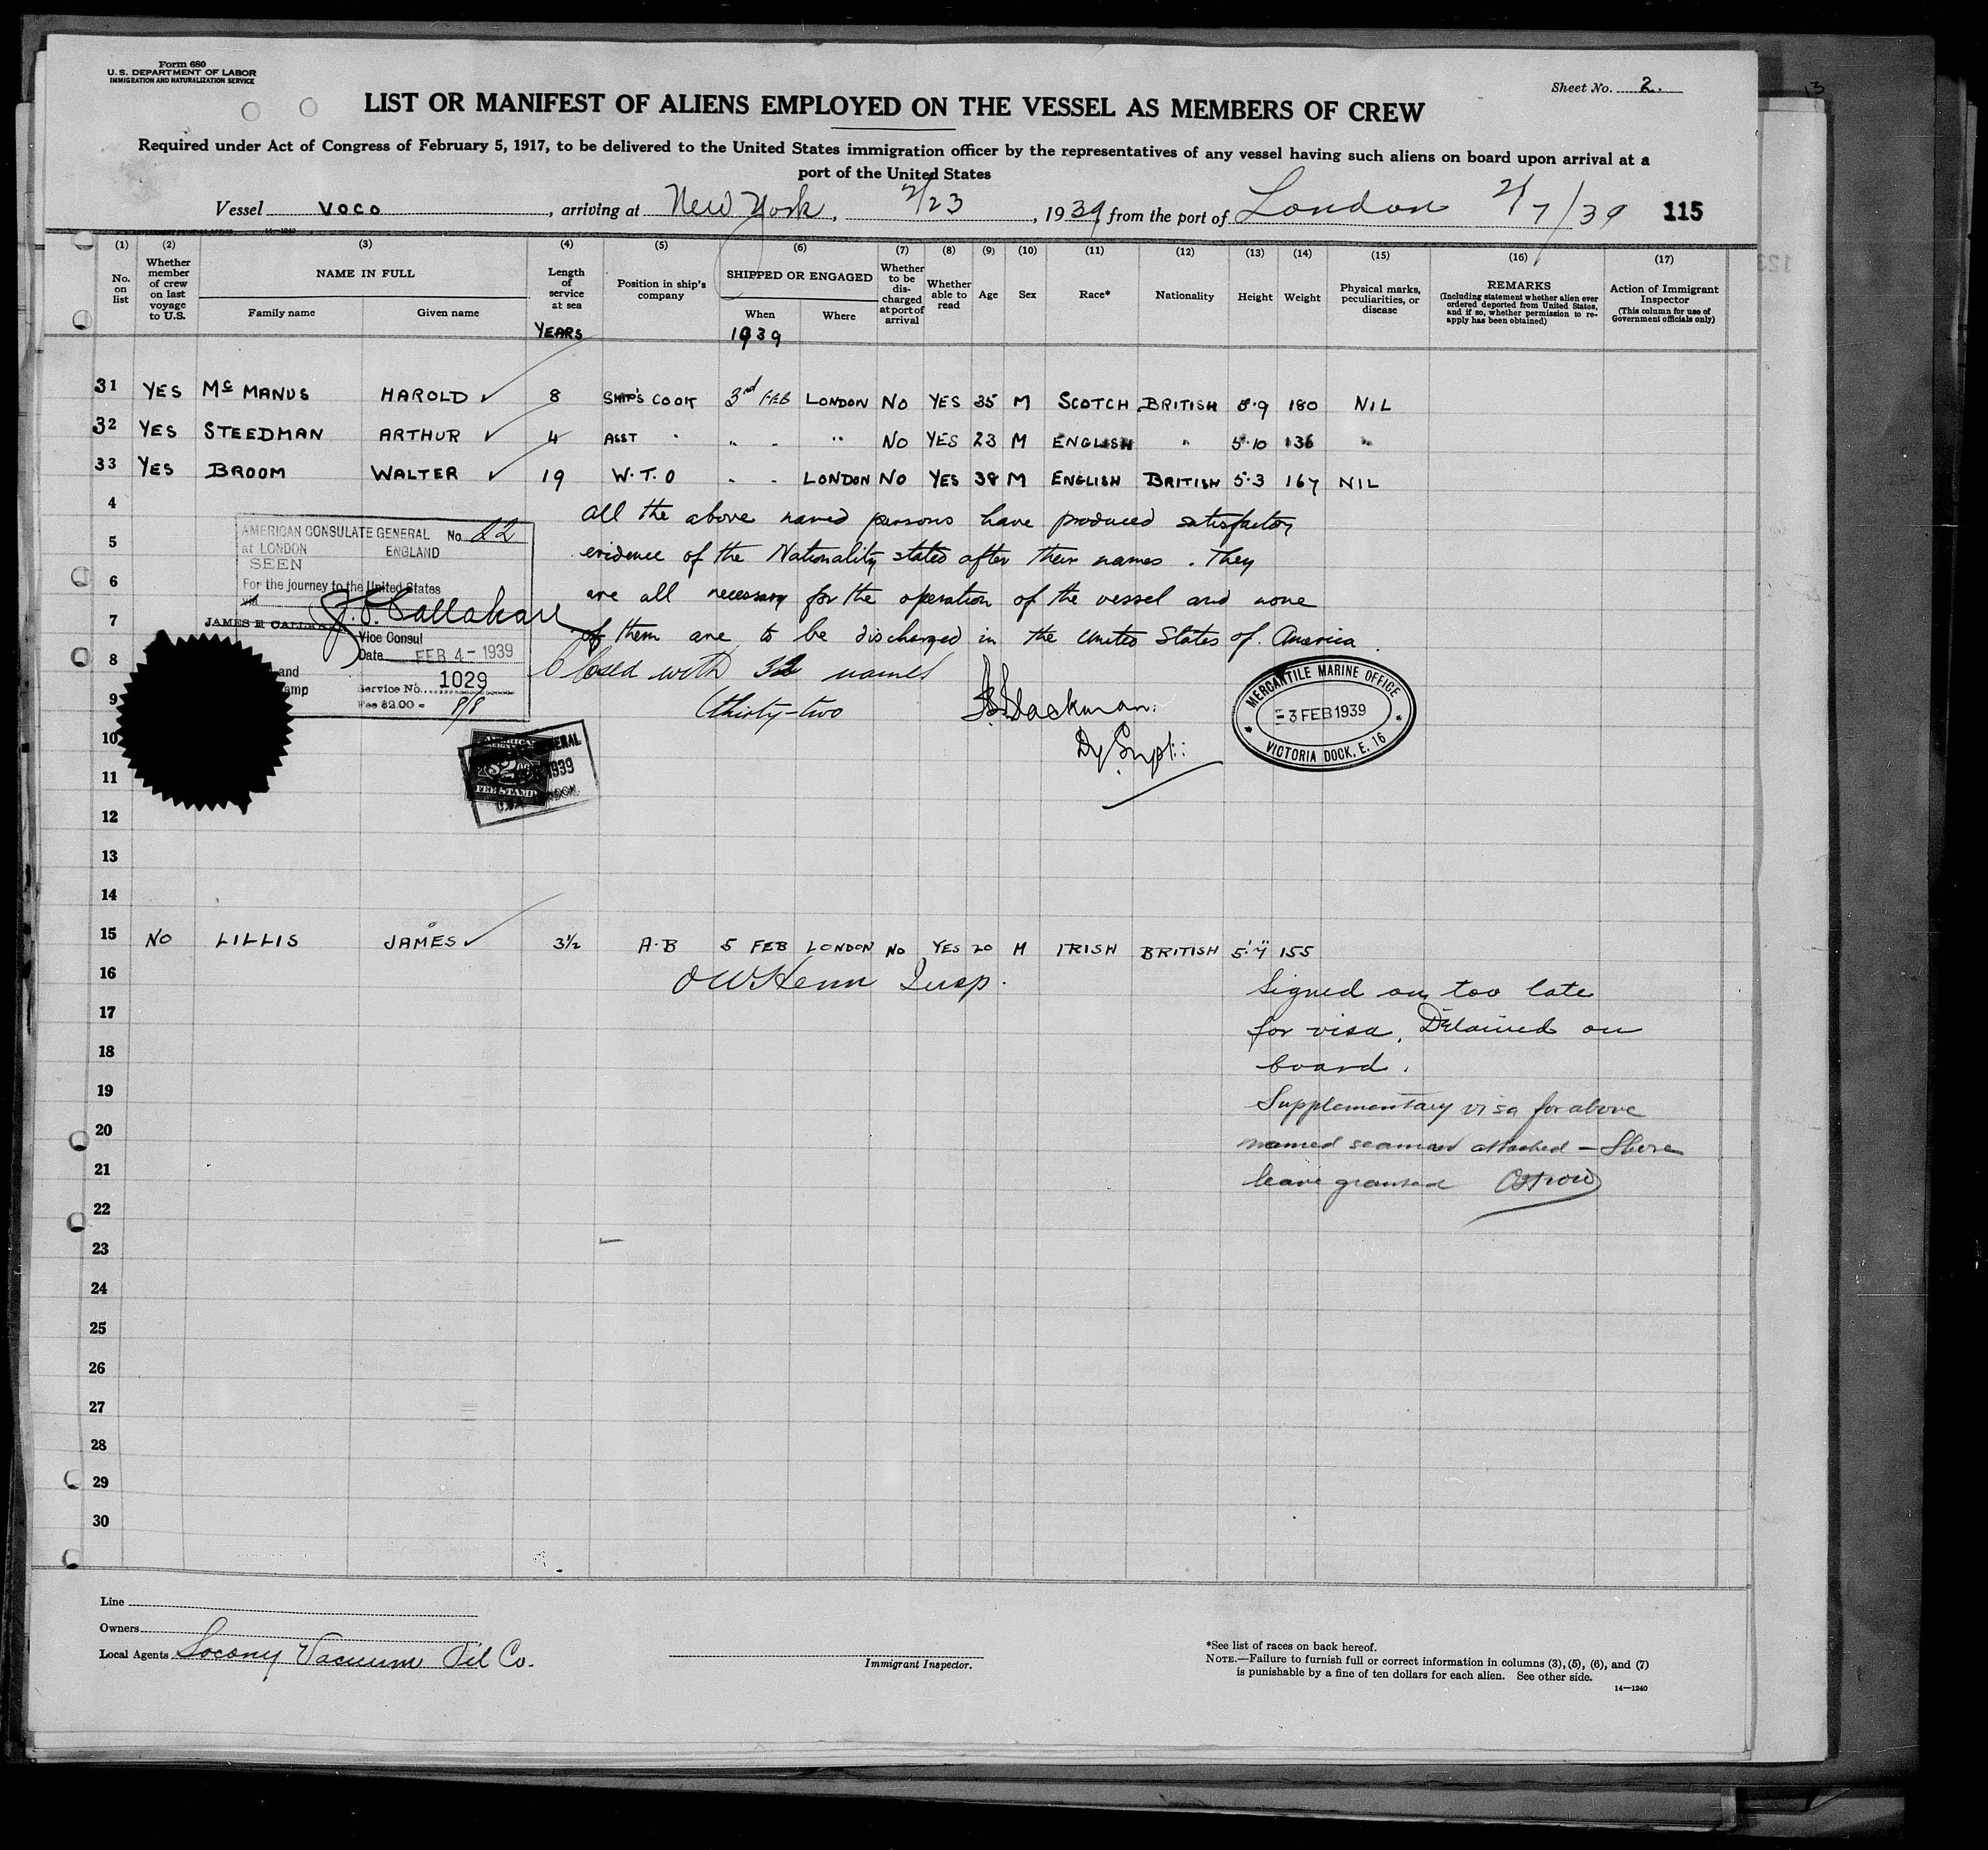 Form 680
U.S. DEPARTMENT OF LABOR
IMMIGRATION AND NATURALIZATION SERVICE
Sheet No. 2.
LIST OR MANIFEST OF ALIENS EMPLOYED ON THE VESSEL AS MEMBERS OF CREW
Required under Act of Congress of February 5, 1917, to be delivered to the United States immigration officer by the representatives of any vessel having such aliens on board upon arrival at a
port of the United States
Vessel VOCO, arriving at New York, 2/23, 1939, from the port of London 2/7/39 115
14—1240
(1) (2) (3) (4) (5) (6) (7) (8) (9) (10) (11) (12) (13) (14) (15) (16) (17)
No. on list
Whether member of crew on last voyage to U.S.
NAME IN FULL
Family name
Given name
Length of service at sea
YEARS
Position in ship's company
SHIPPED OR ENGAGED
When
1939
Where
Whether to be discharged at port of arrival
Whether able to read
Age
Sex
Race*
Nationality
Height
Weight
Physical marks, peculiarities, or disease
REMARKS
(Including statement whether alien ever ordered deported from United States, and if so, whether permission to re-apply has been obtained)
Action of Immigrant Inspector
(This column for use of Government officials only)
31 YES Mc MANUS HAROLD ✓ 8 SHIP'S COOK 3rd FEB LONDON NO YES 35 M SCOTCH BRITISH 5.9 180 NIL
32 YES STEEDMAN ARTHUR ✓ 4 ASST " " " " NO YES 23 M ENGLISH " 5.10 136 "
33 YES BROOM WALTER ✓ 19 W.T.O " " LONDON NO YES 38 M ENGLISH BRITISH 5.3 167 NIL
4 All the above named persons have produced satisfactory
5 evidence of the Nationality stated after their names. They
6 are all necessary for the operation of the vessel and none
7 of them are to be discharged in the United States of America.
8 Closed with 32 names
9 (thirty-two
Dy Supt:
AMERICAN CONSULATE GENERAL No. 22
at LONDON ENGLAND
SEEN
For the journey to the United States
via
J.E. Callahan
JAMES E CALLAHAN
Vice Consul
Date FEB 4 - 1939
and
Service No. 1029
Fee $2.00 =
FEE STAMP
MERCANTILE MARINE OFFICE
3 FEB 1939
VICTORIA DOCK, E. 16
10
11
12
13
14
15 NO LILLIS JAMES ✓ 3½ A.B 5 FEB LONDON NO YES 20 M IRISH BRITISH 5.7 155
16 OW Henn Insp.
Signed on too late
17 for visa. Detained on
18 board.
19 Supplementary visa for above
20 named seaman attached – Shore
21 leave granted
22
23
24
25
26
27
28
29
30
Line
Owners
Local Agents Socony Vacuum Oil Co.
Immigrant Inspector.
*See list of races on back hereof.
NOTE.—Failure to furnish full or correct information in columns (3), (5), (6), and (7)
is punishable by a fine of ten dollars for each alien. See other side.
14—1240